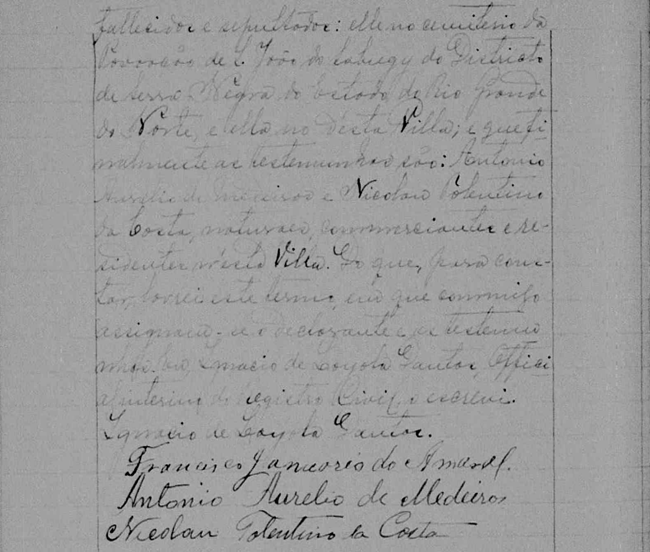 fallecidos e sepultados: elle no cemiterio da
Povoação de S. João do Sabugy do Districto
de Serra Negra do Estado do Rio Grande
do Norte, e ella no desta Villa; e que fi
nalmente as testemunhas são: Antonio
Aurelio de Medeiros e Nicolau Tolentino
da Costa, naturaes, commerciantes e re-
sidentes n'esta Villa. Do que, para cons-
tar, lavrei este termo, em que commigo
assignara-se o declarante e as testemu
nhas. Eu Ignacio de Loyola Santos, Offici
al interino do registro Civil, o escrevi.
Ignacio de Loyola Santos.
Francisco Januario do Amaral.
Antonio Aurelio de Medeiros
Nicolau Tolentino da Costa